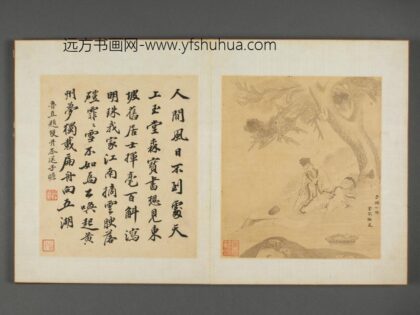 远方书画网-www.yfshuhua.com
人間風日不到處天
上玉堂森寶書想見東
坡舊居士揮毫百斛瀉
明珠我家江南摘雲腴落
磑霏〻雪不如為公喚起黃
州夢獨載扁舟向五湖
魯直 雙井茶送子瞻